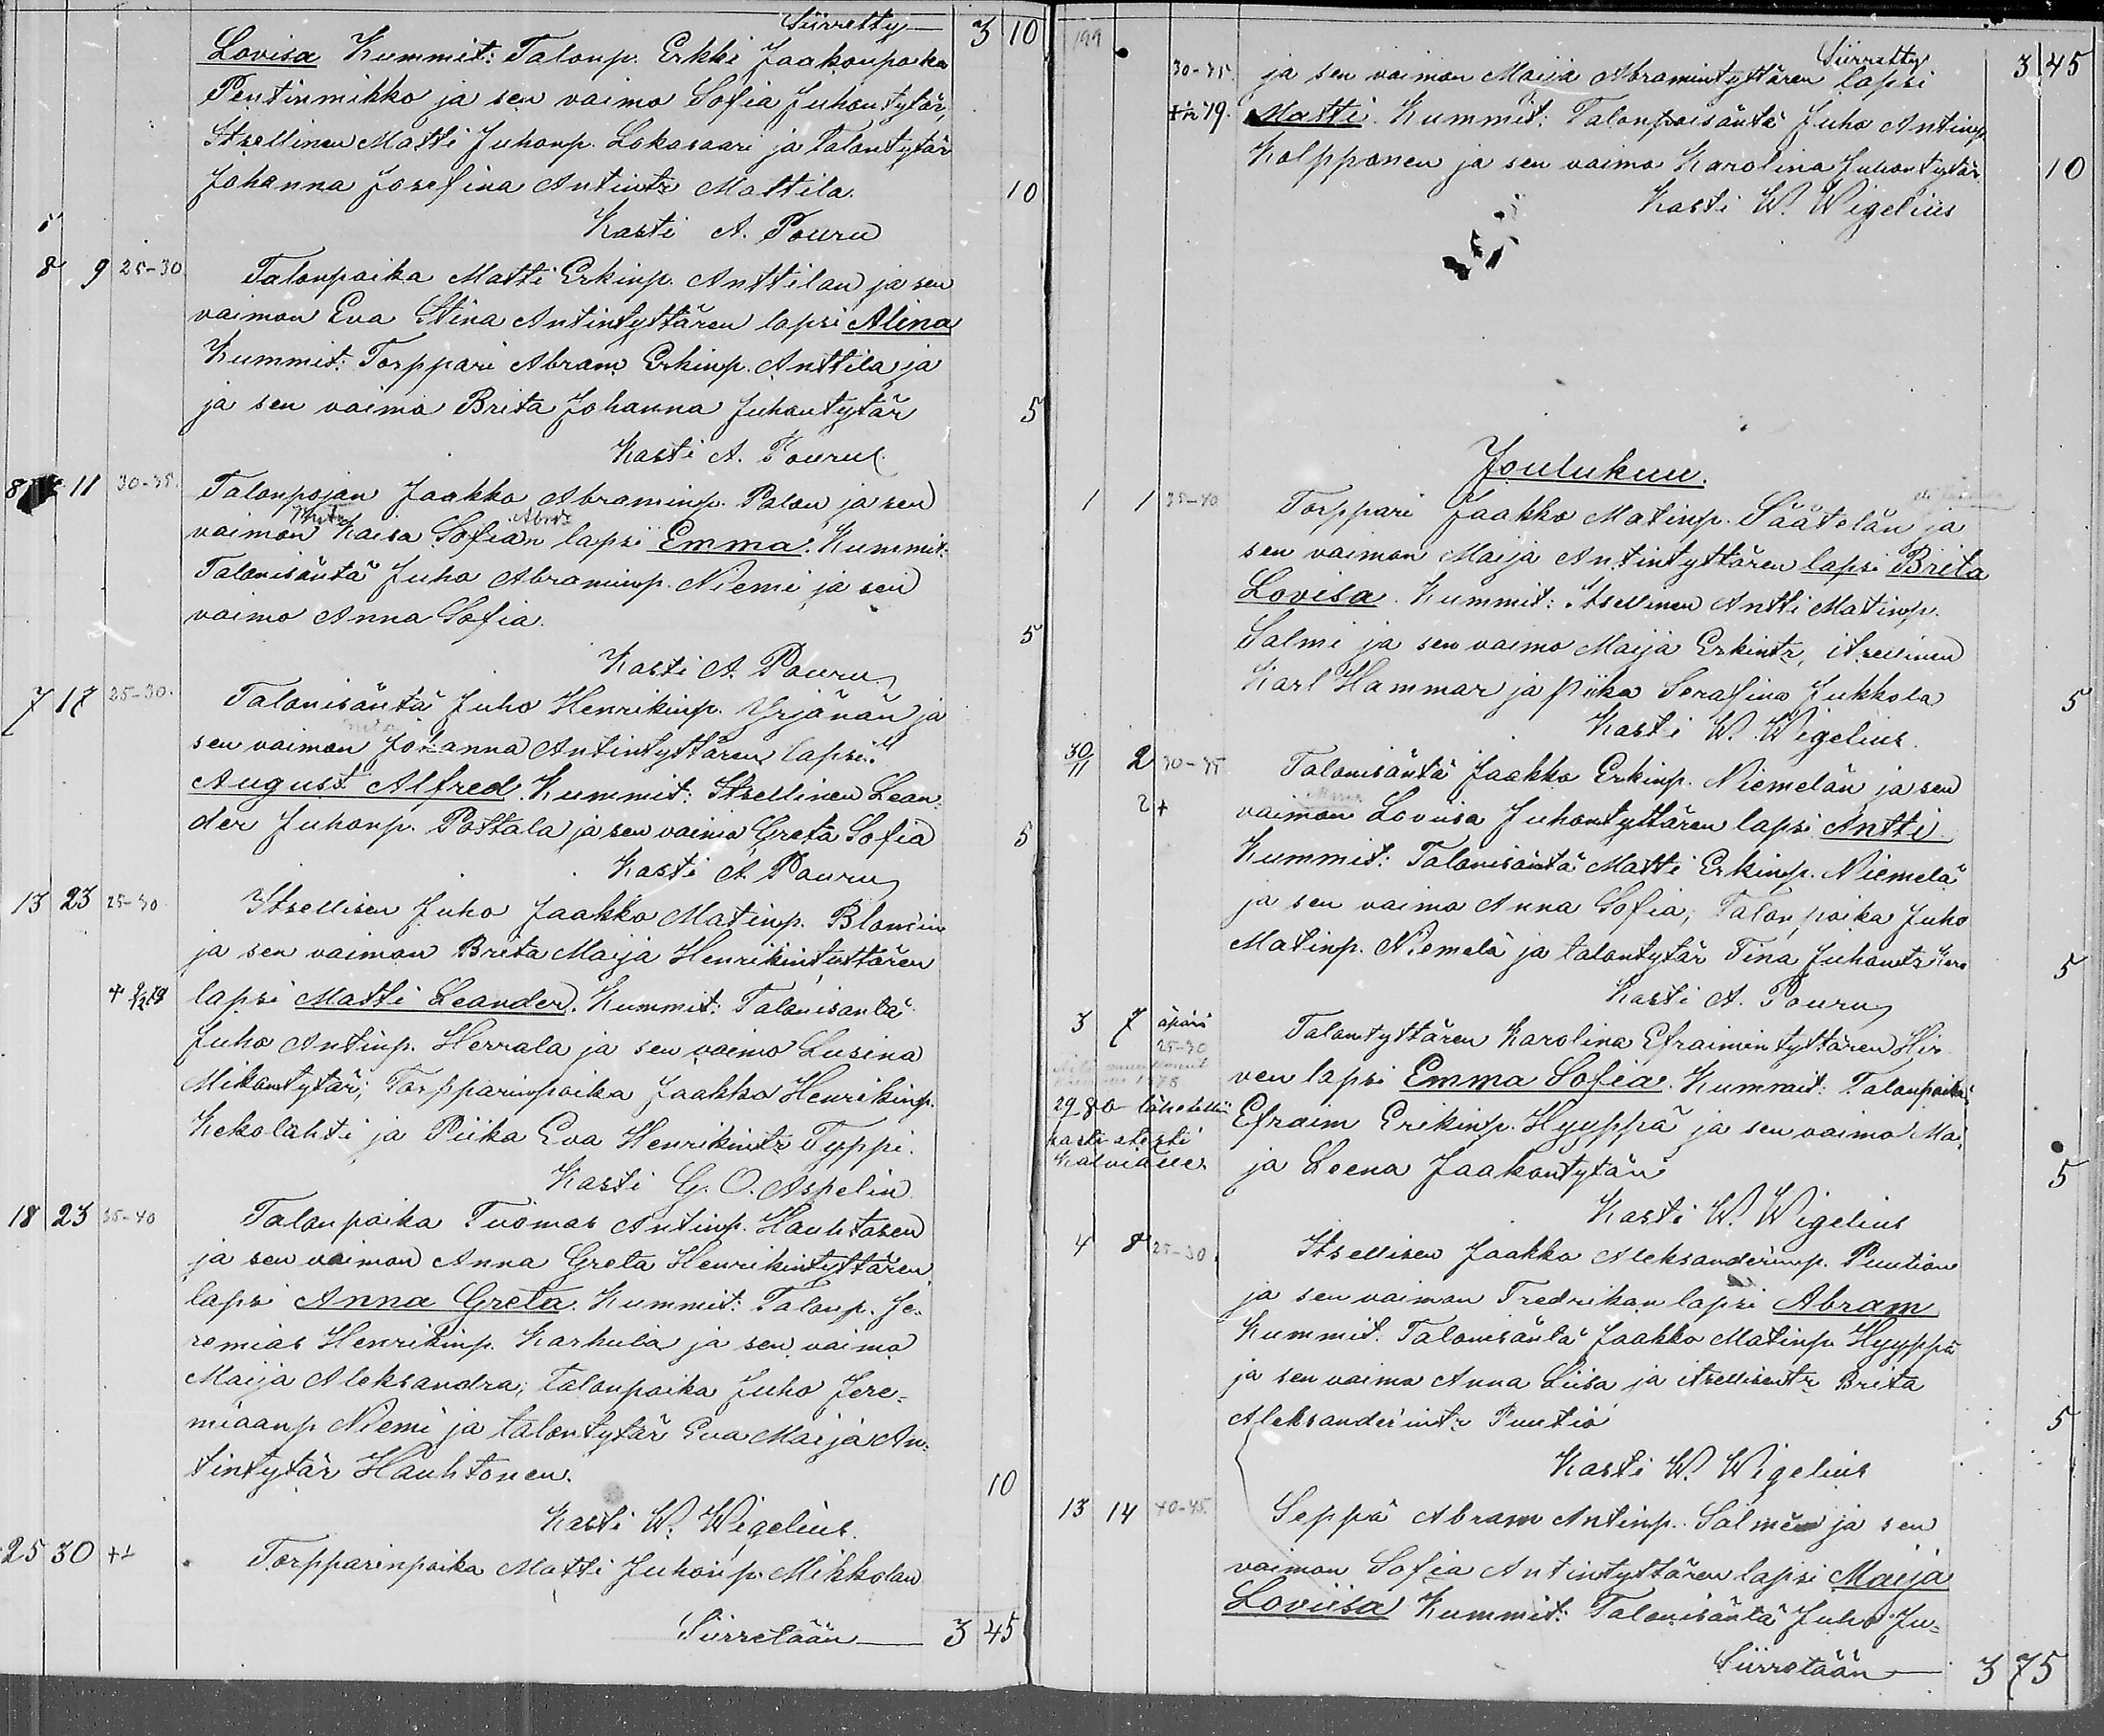 Siirretty 3 10
Lovisa Kummit: Talonp. Erkki Jaakonpoika
Pentinmikko ja sen vaimo Sofia Juhontytär,
Itsellinen Matti Juhonp. Lokasaari ja Talontytär
Johanna Josefina Antintr Mattila. 10
Kasti A. Pouru
8 9 25-30 Talonpoika Matti Erkinp. Anttilan ja sen
vaimon Eva Stina Antintyttären lapsi Alina
Kummit: Torppari Abram Erkinp. Anttila ja
ja sen vaimo Brita Johanna Juhontytär 5
Kasti A. Pouru
8 11 30-35. Talonpojan Jaakko Abraminp. Palon ja sen
vaimon Kaisa Sofian lapsi Emma. Kummit:
Talonisäntä Juho Abraminp. Niemi ja sen
vaimo Anna Sofia. 5
Kasti A. Pouru
7 17 25-30. Talonisäntä Juho Henrikinp. Yrjänän ja
sen vaimon Johanna Antintyttären lapsi
August Alfred. Kummit: Itsellinen Lean-
der Juhonp. Pottala ja sen vaimo Greta Sofia 5
Kasti A. Pouru
13 23 25-30 Itsellisen Juho Jaakko Matinp. Blomin
ja sen vaimon Brita Maija Henrikintyttären
lapsi Matti Leander. Kummit: Talonisäntä
Juho Antinp. Herrala ja sen vaimo Lusina
Mikontytär; Torpparinpoika Jaakko Henrikinp.
Kekolahti ja Piika Eva Henrikintr Typpi.
Kasti G. O. Aspelin
18 23 35-40 Talonpoika Tuomas Antinp. Hauhtosen
ja sen vaimon Anna Greta Henrikintyttären
lapsi Anna Greta. Kummit: Talonp. Je-
remias Henrikinp. Karhula ja sen vaimo
Maija Aleksandra; talonpoika Juho Jere-
miaanp Niemi ja talontytär Eva Maija An-
tintytär Hauhtonen. 10
Kasti W. Wigelius.
25 30 Torpparinpoika Matti Juhonp. Mikkolan
Siirretään 3 45
199
Siirretty 3 45
30-35. ja sen vaimon Maija Abramintyttären lapsi
Matti. Kummit: Talonpoisäntä Juho Antinp
Kolpponen ja sen vaimo Karolina Juhontytär. 10
Kasti W. Wigelius
Joulukuu.
1 1 35-40 Torppari Jaakko Matinp. Säätelän ja
sen vaimon Maija Antintyttären lapsi Brita
Lovisa. Kummit: Itsellinen Antti Matinp.
Salmi ja sen vaimo Maija Erkintr, itsellinen
Karl Hammar ja piika Serafina Jukkola 5
Kasti W. Wigelius.
30/11 2 30-35 Talonisäntä Jaakko Erkinp. Niemelän ja sen
2 + vaimon Loviisa Juhontyttären lapsi Antti
Kummit: Talonisäntä Matti Erkinp. Niemelä
ja sen vaimo Anna Sofia; Talonpoika Juho
Matinp. Niemelä ja talontytär Tina Juhontr 5
Kasti A. Pouru
3 7 äpärä 25-30 Talontyttären Karolina Efraimintyttären Hir
ven lapsi Emma Sofia. Kummit: Talonpoika
Efraim Erikinp. Hyyppä ja sen vaimo Mai
ja Leena Jaakontytär 5
Kasti W. Wigelius
4 8 25-30. Itsellisen Jaakko Aleksanderinp. Puution
ja sen vaimon Fredrikan lapsi Abram
Kummit. Talonisäntä Jaakko Matinp. Hyyppä
ja sen vaimo Anna Liisa ja itsellisentr Brita
Aleksanderintr Puutio 5
Kasti W. Wigelius
13 14 40-45. Seppä Abram Antinp. Salmen ja sen
vaimon Sofia Antintyttären lapsi Maija
Loviisa Kummit: Talonisäntä Juho Ju-
Siirretään 3 75